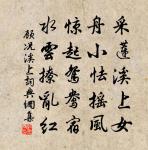 采蓮溪上女
舟小怯搖風
驚起鴛鴦宿
水雲撩亂紅
顧況溪上詞典網集